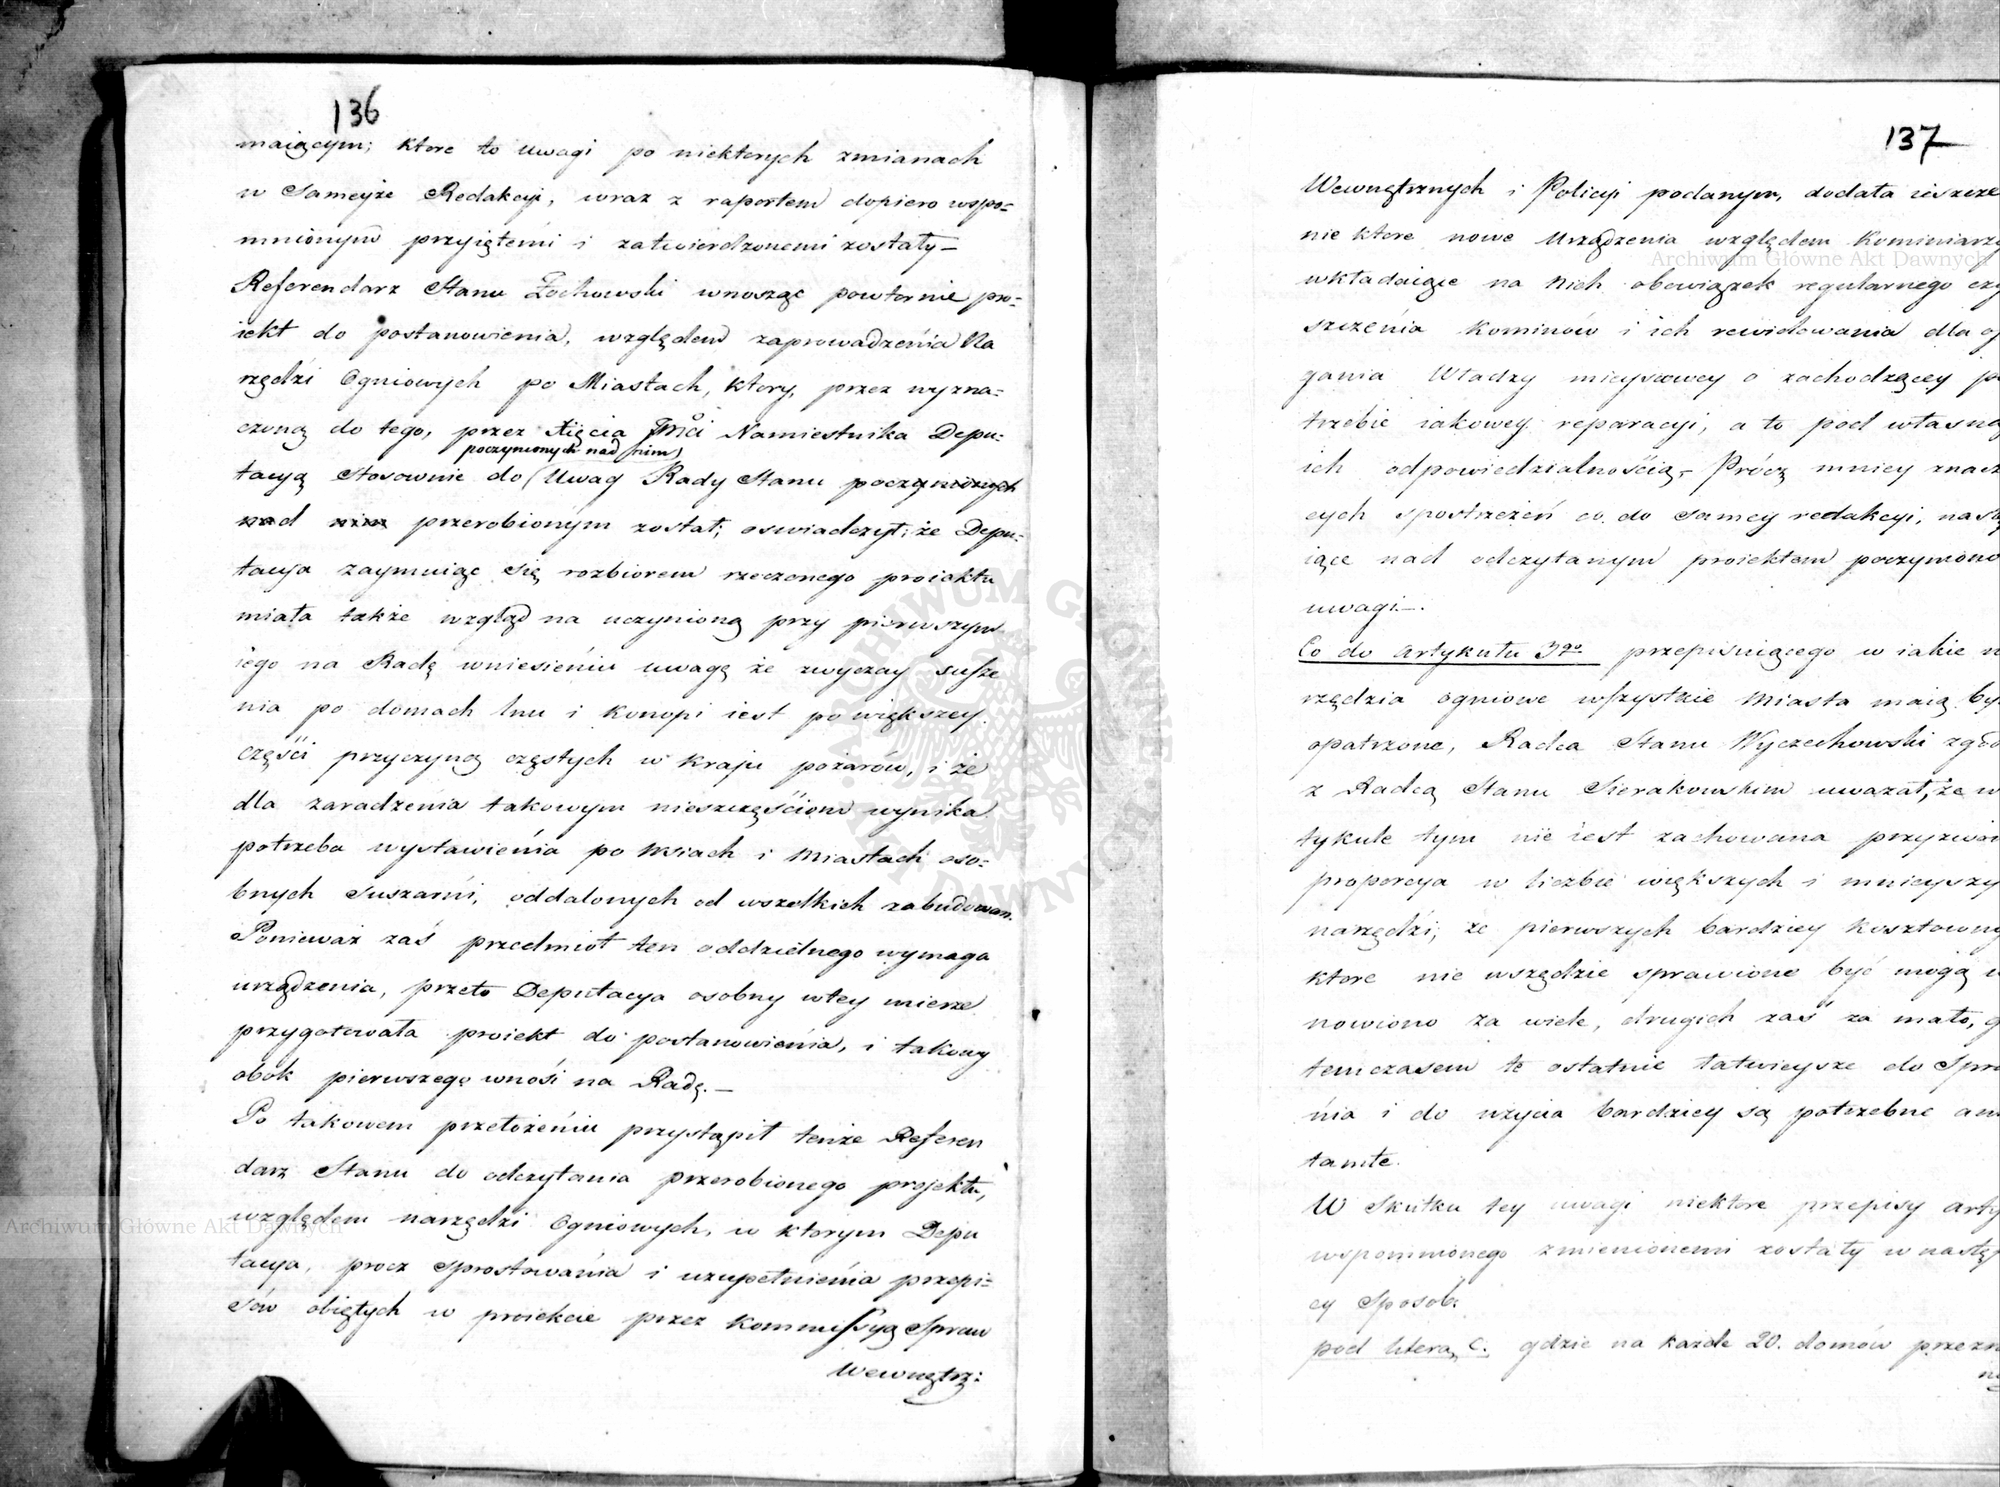 136
maiącym; ktore to uwagi po niektorych zmianach
w Sameyże Redakcyi, wraz z raportem dopiero wspo=
mnionym przyiętemi i zatwierdzonemi zostały —
Referendarz Stanu Żochowski wnosząc powtornie pro=
iekt do postanowienia, względem zaprowadzenia Na
rzędzi Ogniowych po Miastach, ktory, przez wyzna=
czoną do tego, przez Xięcia JMci Namiestnika Depu=
poczynionych nad nim
tacyą Stosownie do (Uwag Rady Stanu poczynionych
nad nim przerobionym został; oswiadczył: że Depu=
tacya zaymuiąc się rozbiorem rzeczonego proiektu
miała także wzgląd na uczynioną przy pierwszym
iego na Radę wniesieniu uwagę że zwyczay susze
nia po domach lnu i konopi iest po większey
części przyczyną częstych w kraju pożarów, i że
dla zaradzenia takowym nieszczęściom wynika
potrzeba wystawienia po Wsiach i Miastach oso=
bnych Suszarni, oddalonych od wszelkich zabudowan.
Ponieważ zaś przedmiot ten oddzielnego wymaga
urządzenia, przeto Deputacya osobny w tey mierze
przygotowała proiekt do postanowienia, i takowy
obok pierwszego wnosi na Radę. —
Po takowem przełożeniu przystąpił tenże Referen
darz Stanu do odczytania przerobionego projektu,
względem narzędzi Ogniowych, w ktorym Depu
tacya, procz Sprostowania i uzupełnienia przepi=
sów obiętych w proiekcie przez Kommissyą Spraw
Wewnętrz:
137
Wewnętrznych i Policyi podanym, dodała ieszcze
nie ktore nowe Urządzenia względem Kominiarzy
wkładaiące na Nich obowiązek regularnego czy
szczenia Kominów i ich rewidowania dla
gania Władzy mieyscowey o zachodzącey po
trzebie iakowey reparacyi, a to pod własną
ich odpowiedzialnością. — Prócz mniey znacz
cych spostrzeżeń co do samey redakcyi, nastę
iące nad odczytanym proiektem poczyniono
uwagi —.
Co do Artykułu 3go przepisuiącego w iakie n
rzędzia ogniowe wszystkie Miasta maią by
opatrzone, Radca Stanu Wyczechowski zgod
z Radcą Stanu Sierakowskim uwazał, że w
tykule tym nie iest zachowana przyzwoi
proporcya w liczbie większych i mnieyszy
narzędzi; że pierwszych bardziey kosztowny
ktore nie wszędzie sprawione być mogą
nowiono za wiele, drugich zaś za mało, g
temczasem te ostatnie łatwieysze do Spra
nia i do użycia bardziey są potrzebne an
tamte.
W Skutku tey uwagi niektore przepisy arty
wspomnionego zmienionemi zostały w nastę
cy Sposob:
pod literą C. gdzie na każde 20. domów przezn
Archiwum Główne Akt Dawnych
Archiwum Główne Akt Dawnych
ARCHIWUM GŁÓWNE AKT DAWNYCH